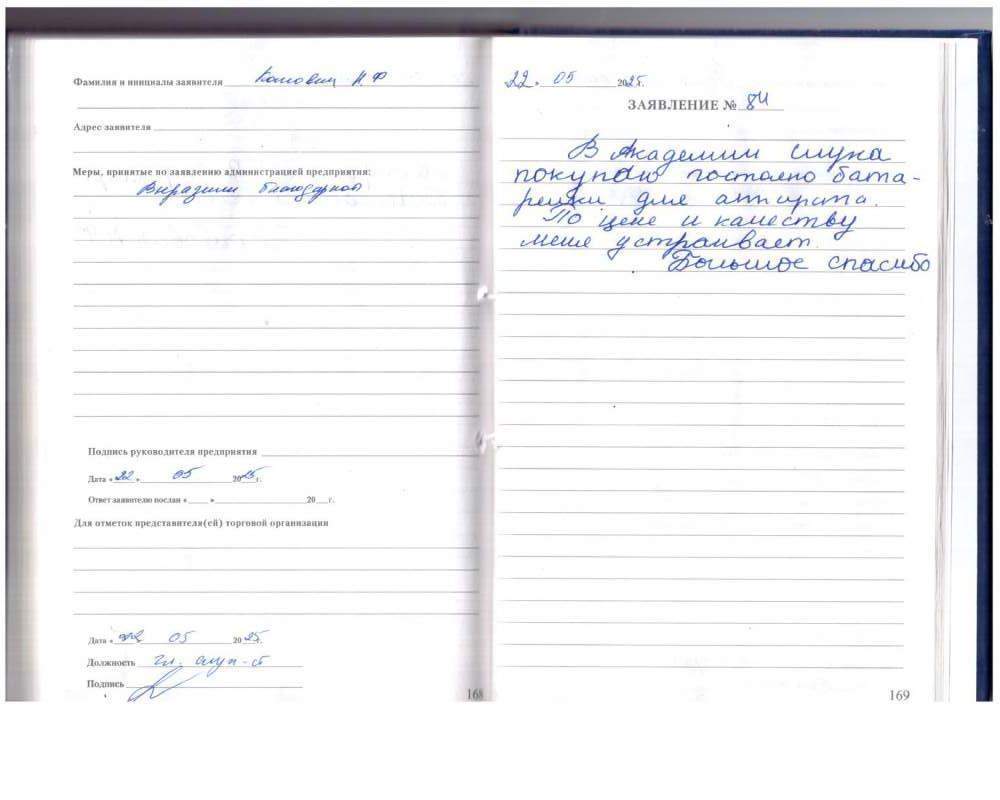 Фамилия и инициалы заявителя Н. Ф
Адрес заявителя
Меры, принятые по заявлению администрацией предприятия:
Выразили благодарност
Подпись руководителя предприятия
Дата « 22 » 05 2025 г.
Ответ заявителю послан « » 20 г.
Для отметок представителя(ей) торговой организации
Дата « 22 05 20 25 г.
Должность гл.
Подпись
168
22 » 05 2025 г.
ЗАЯВЛЕНИЕ № 84
В Академии слуха
покупаю постояно бата-
рейки для аппарата.
По цене и качеству
меня устраивает.
Большое спасибо
169